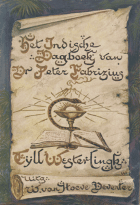 Het Indische
Dagboek van
Dr Peter Fabrizius
Tyll Westerlingk
Uitg.
W. van Hoeve Deventer